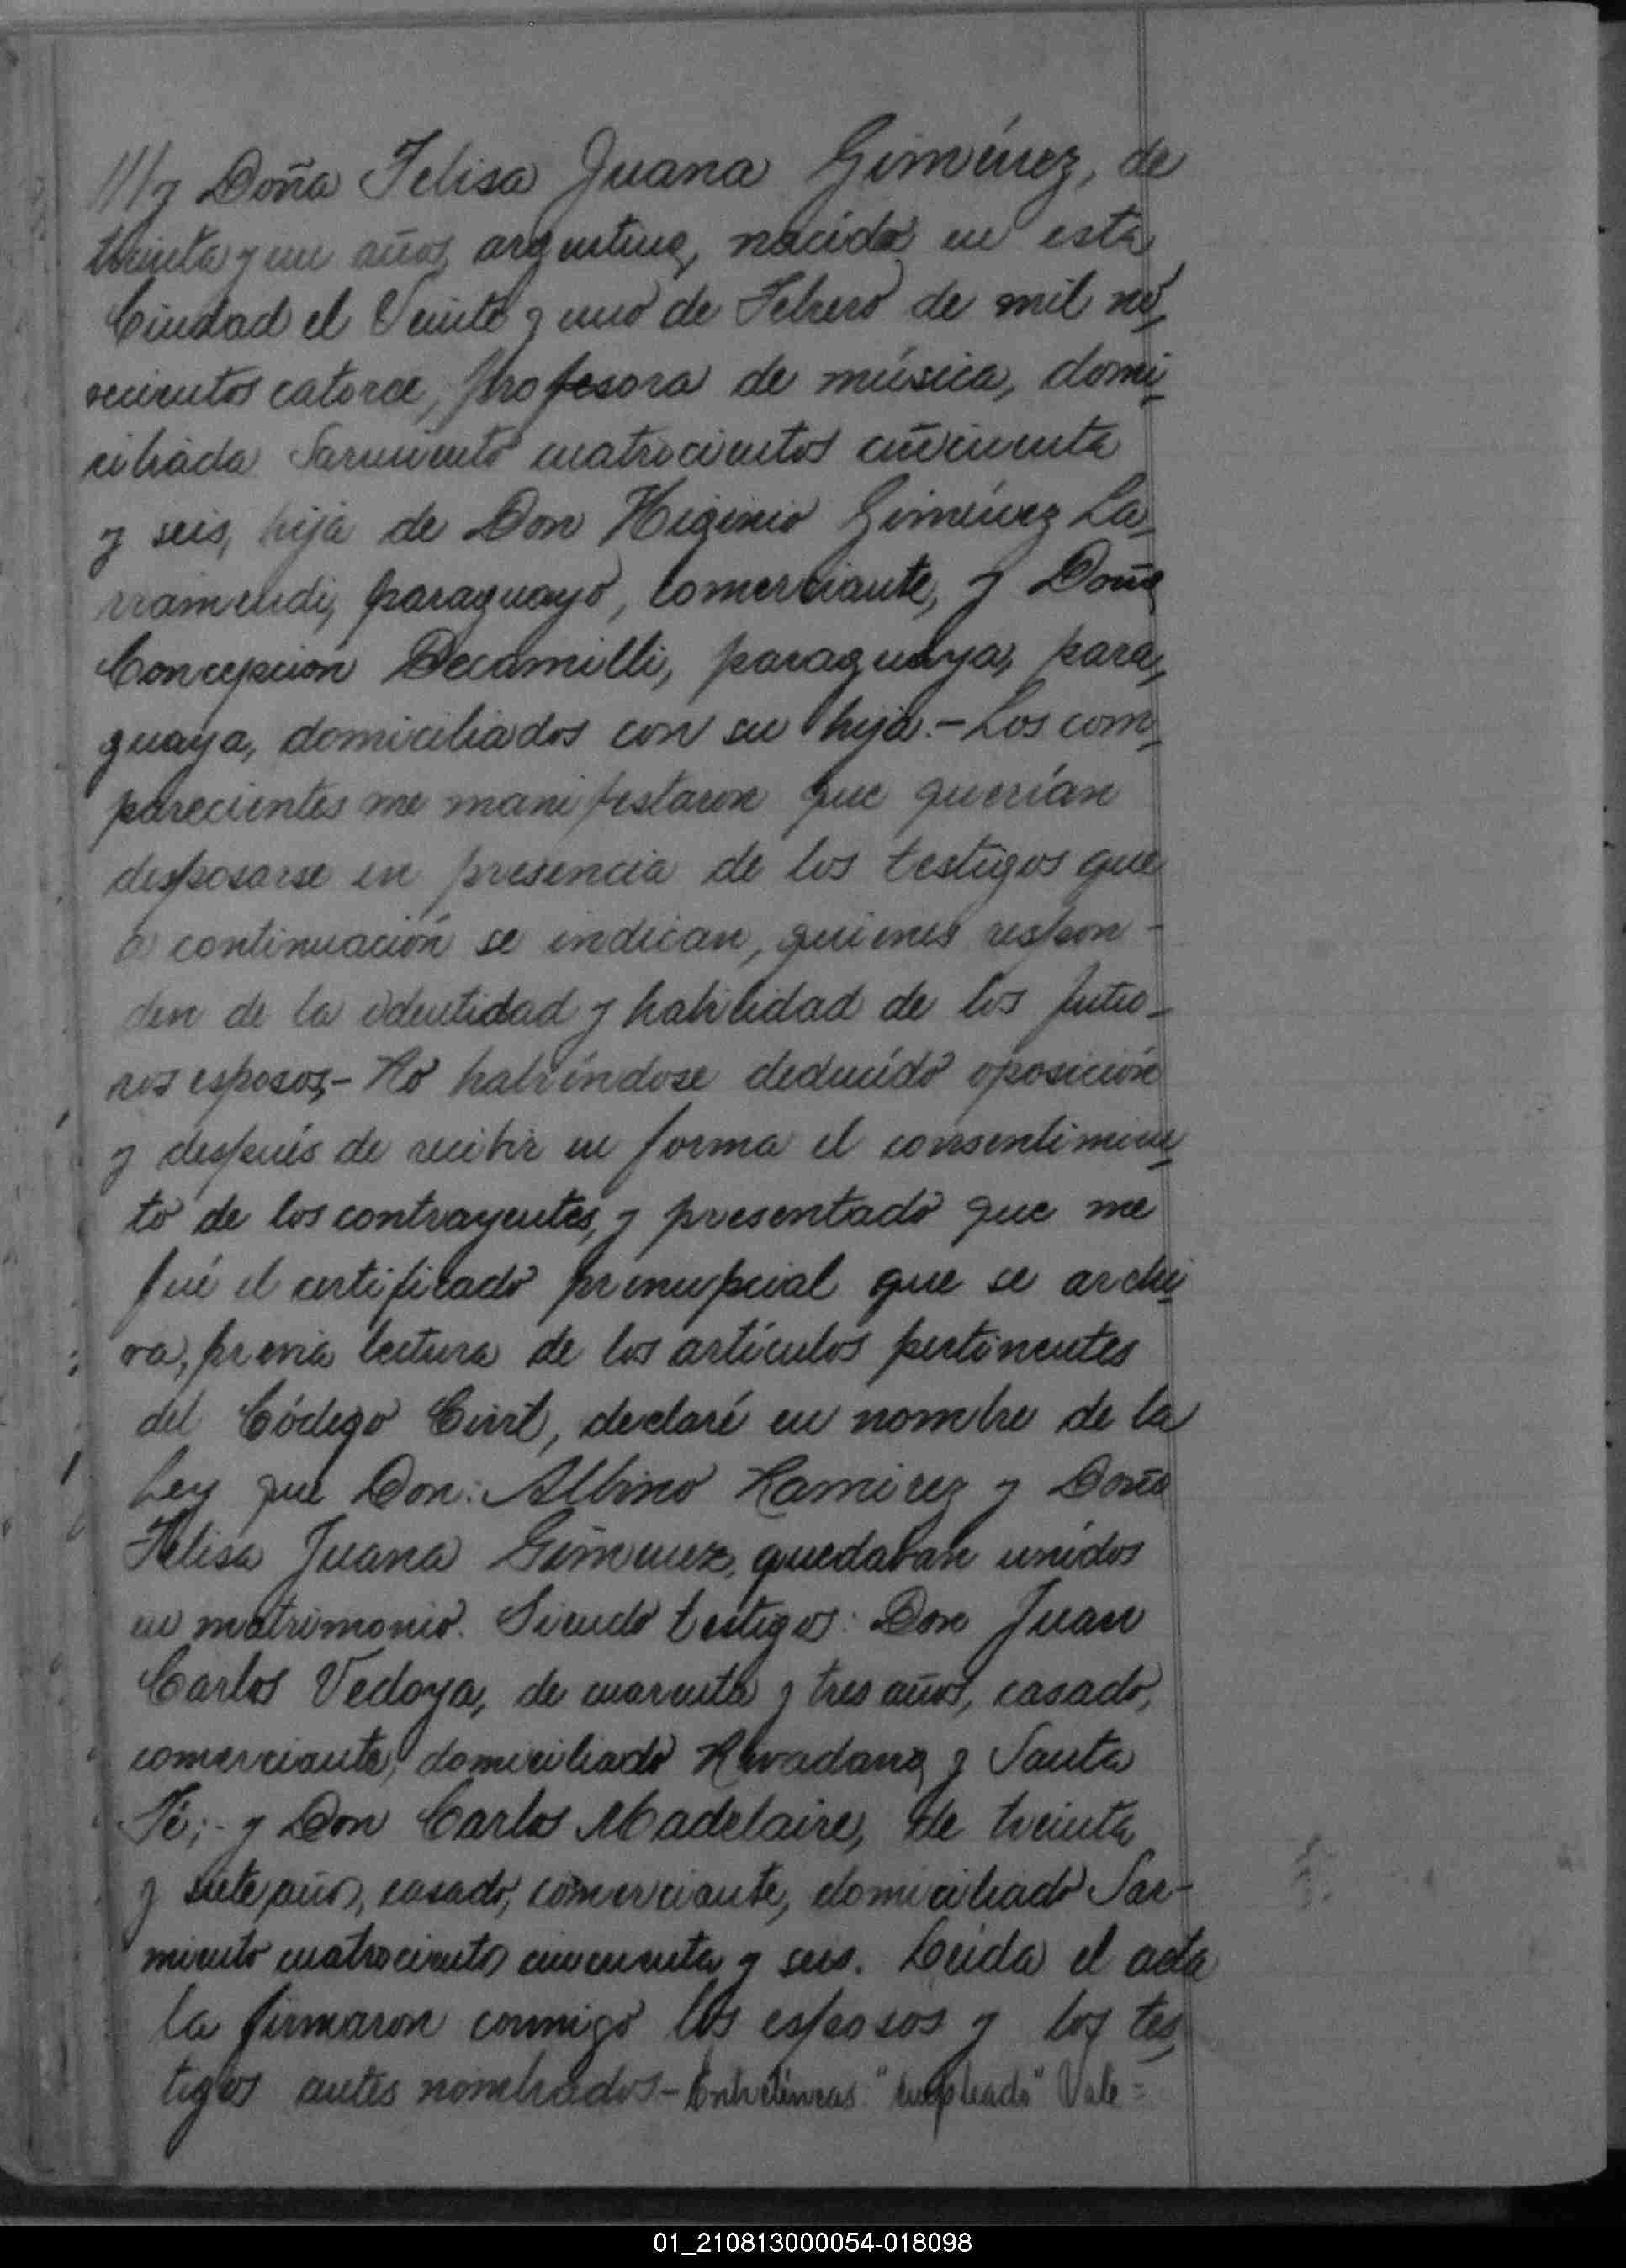 ///y Doña Felisa Juana Giménez, de
treinta y un años, argentina, nacida en esta
Ciudad el Veinte y uno de Febrero de mil no_
vecientos catorce, profesora de música, domi_
ciliada Sarmiento cuatrocientos cincuenta
y seis, hija de Don Higinio Giménez La_
rramendi, paraguayo, comerciante, y Doña
Concepción Decamilli, paraguaya, para_
guaya, domiciliados con su hija.- Los com_
parecientes me manifestaron que querían
desposarse en presencia de los testigos que
a continuación se indican, quienes respon-
den de la identidad y habilidad de los futu_
ros esposos,- No habiéndose deducido oposición
y después de recibir en forma el consentimien_
to de los contrayentes, y presentado que me
fué el certificado prenupcial que se archi_
va, previa lectura de los artículos pertinentes
del Código Civil, declaré en nombre de la
Ley que Don: Albino Ramirez y Doña
Felisa Juana Gimenez, quedaban unidos
en matrimonio. Siendo testigos: Don Juan
Carlos Vedoya, de cuarenta y tres años, casado,
comerciante, domiciliado Rivadavia y Santa
Fé;- y Don Carlos Madelaire, de treinta
y siete años, casado, comerciante, domiciliado Sar-
miento cuatrocientos cincuenta y seis. Leída el acta
la firmaron conmigo los esposos y los tes_
tigos antes nombrados- Entrelíneas "empleado" Vale=
01_210813000054-018098